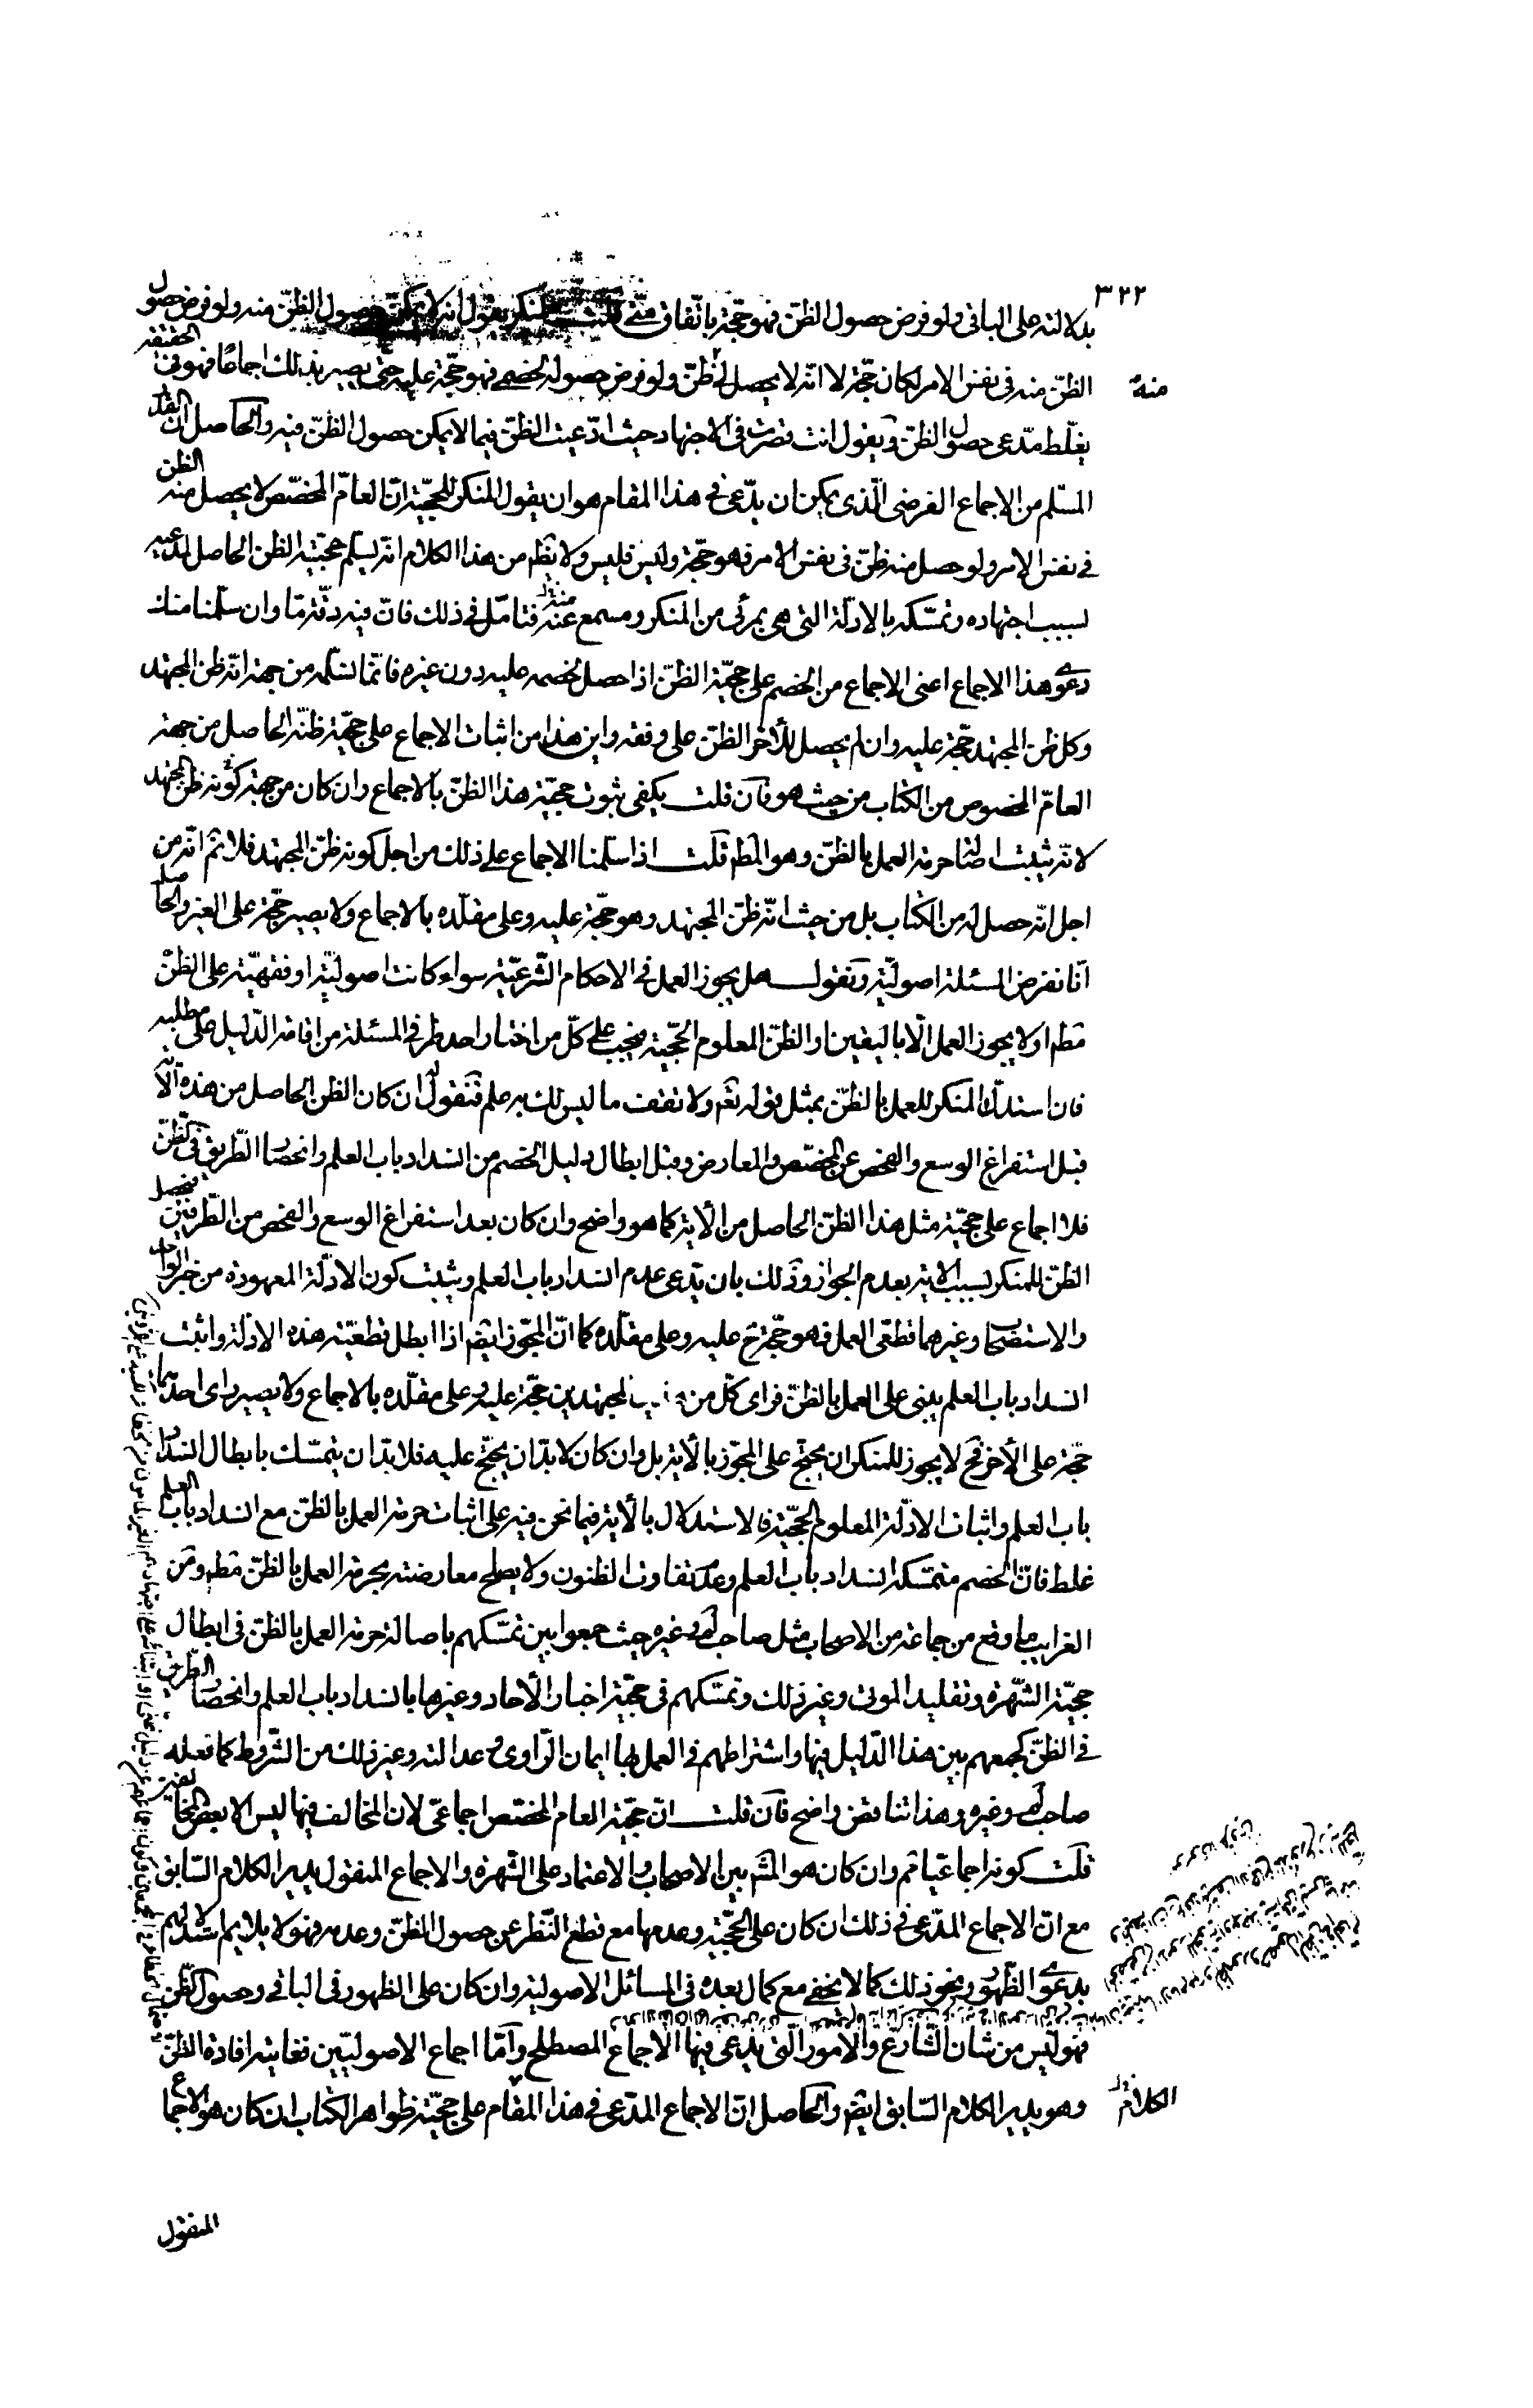 ٣٢٢
بدلالته على الباقي ولو فرض حصول الظنّ فهو حجّة باتّفاق منّي قلت المنكر يقول انه لا يمكن حصول الظنّ منه ولو فرض حصول
الظنّ منه في نفس الامر لكان حجّة لا انّه لا يحصل لي ظنّ ولو فرض حصوله لخصمي فهو حجّة عليه حتى يصير بذلك اجماعًا فهو في الحقيقة
منهٌ
يغلّط مدّعي حصول الظنّ ويقول انت قصّرت في الاجتهاد حيث ادّعيت الظنّ فيما لا يمكن حصول الظنّ فيه والحاصل ان القدر
المسلّم من الاجماع الفرضي الّذي يمكن ان يدّعى في هذا المقام هو ان يقول المنكر للحجّية انّ العامّ المخصّص لا يحصل منه الظن
في نفس الامر ولو حصل منه ظنّ في نفس الامر فهو حجّة وليس فليس ولا يظهر من هذا الكلام انّه يسلّم حجّية الظن الحاصل لمدّعيه
بسبب اجتهاده وتمسّكه بالادلّة التي هي بمرئى من المنكر ومسمع عنه فتامّل في ذلك فانّ فيه دقّة مّا وان سلّمنا منك
دعوى هذا الاجماع اعني الاجماع من الخصم على حجّية الظنّ اذا حصل لخصمه عليه دون غيره فانّما نسلّمه من جهة انّه ظن المجتهد
وكل ظن المجتهد حجّة عليه وان لم يحصل للأخر الظنّ على وفقه واين هذا من اثبات الاجماع على حجّية ظنّه الحاصل من جهة
العامّ المخصوص من الكتاب من حيث هو فان قلت يكفي ثبوت حجّية هذا الظنّ بالاجماع وان كان من جهة كونه ظن المجتهد
لانّه يثبت اصالة حرمة العمل بالظنّ وهو المط قلت اذا سلّمنا الاجماع على ذلك من اجل كونه ظنّ المجتهد فلا ثم انّه من
اجل انّه حصل له من الكتاب بل من حيث انّه ظنّ المجتهد وهو حجّة عليه وعلى مقلّده بالاجماع ولا يصير حجّة على الغير والحاصل
انّا نفرض المسئلة اصوليّة ونقول هل يجوز العمل في الاحكام الشّرعيّة سواء كانت اصوليّة او فقهيّة على الظنّ
مطم او لا يجوز العمل الّا باليقين او الظنّ المعلوم الحجّية فيجب على كلّ من اختار احد طرفي المسئلة من اقامة الدّليل على مطلبه
فان استدلّ المنكر للعمل بالظنّ بمثل قوله تعم ولا تقف ما ليس لك به علم فنقول له ان كان الظن الحاصل من هذه الآية
قبل استفراغ الوسع والفحص عن المخصّص والمعارض وقبل ابطال دليل الخصم من انسداد باب العلم وانحصار الطّريق في الظنّ
فلا اجماع على حجّية مثل هذا الظنّ الحاصل من الأية كما هو واضح وان كان بعد استفراغ الوسع والفحص من الطّرفين فيحصل
الظنّ للمنكر بسبب الأية بعدم الجواز وذلك بان يدّعي عدم انسداد باب العلم ويثبت كون الادلّة المعهودة من خبر الواحد
والاستصحاب وغيرهما قطعي العمل فهو حجّة ح عليه وعلى مقلّده كما انّ المجوّز ايضم اذا ابطل قطعيّة هذه الادلّة واثبت
انسداد باب العلم يبني على العمل بالظنّ فراى كلّ من المجتهدين حجّة عليه وعلى مقلّده بالاجماع ولا يصير راى احدهما
حجّة على الأخر فح لا يجوز للمنكر ان يحتجّ على المجوّز بالأية بل وان كان لا بدّ ان يحتجّ عليه فلا بدّ ان يتمسّك بابطال انسداد
باب العلم واثبات الادلّة المعلوم الحجّية فالاستدلال بالأية فيما نحن فيه على اثبات حرمة العمل بالظنّ مع انسداد باب العلم
غلط فانّ الخصم متمسّكه انسداد باب العلم وعدم تفاوت الظنون ولا يصلح معارضته بحرمة العمل بالظنّ مطم ومن
الغرايب ما وقع من جماعة من الاصحاب مثل صاحب لم وغيره حيث جمعوا بين تمسّكهم باصالة حرمة العمل بالظنّ في ابطال
حجيّة الشّهرة وتقليد الموتى وغير ذلك وتمسّكهم في حجّية اخبار الأحاد وغيرها بانسداد باب العلم وانحصار الطّريق
في الظنّ كجمعهم بين هذا الدّليل فيها واشتراطهم في العمل بها ايمان الرّاوي وعدالته وغير ذلك من الشّروط كما فعله
صاحب لم وغيره وهذا تناقض واضح فان قلت انّ حجّية العام المخصّص اجماعيّ لان المخالف فيها ليس الا بعض المخالفين
قلت كونه اجماعيّا ثم وان كان هو المشم بين الاصحاب والاعتماد على الشّهرة والاجماع المنقول يدير الكلام السّابق
مع انّ الاجماع المدّعى في ذلك ان كان على الحجّية وعدمها مع قطع النّظر عن حصول الظنّ وعدمه فهو لا يلايم استدلالهم
بدعوى الظّهور ونحو ذلك كما لا يخفى مع كمال بعده في المسائل الاصوليّة وان كان على الظهور في الباقي وحصول الظّن
فهو ليس من شان الشّارع والامور الّتي يدّعى فيها الاجماع المصطلح وامّا اجماع الاصوليّين فغايته افادة الظنّ
وهو يدير الكلام السّابق ايضم والحاصل انّ الاجماع المدّعى في هذا المقام على حجيّة ظواهر الكتاب ان كان هو الاجماع
الكلام
المنقول